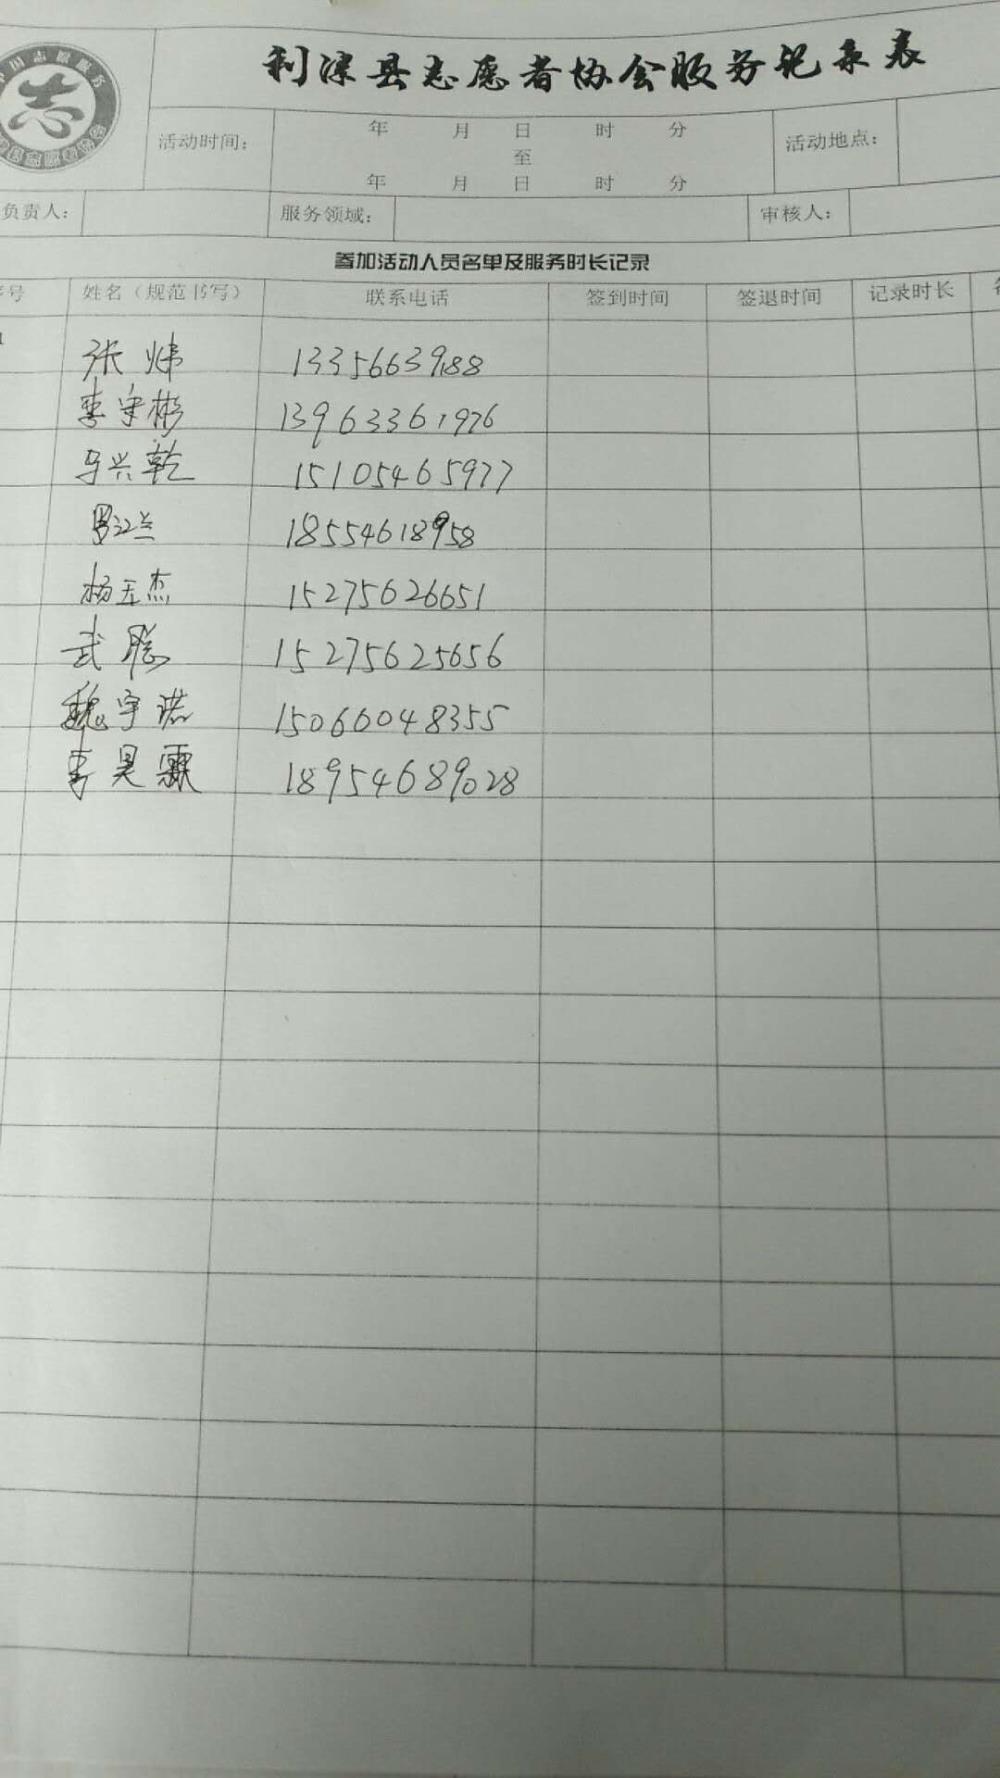 利津县志愿者协会服务记录表
志
活动时间： 年 月 日 时 分 活动地点：
至
年 月 日 时 分
负责人： 服务领域： 审核人：
参加活动人员名单及服务时长记录
序号 姓名（规范书写） 联系电话 签到时间 签退时间 记录时长
张炜 13356639188
李守彬 13963361976
马兴乾 15105465977
罗江兰 18554618958
杨玉杰 15275626651
武聪 15275625656
魏宇诺 15066048355
李昊霖 18954689028